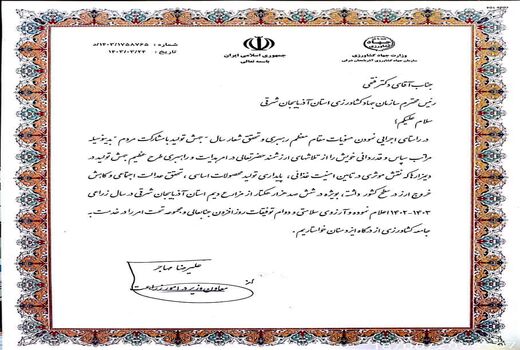 شماره : ۱۴۰۳/۱۷۵۸۷۶۵/د
تاریخ : ۱۴۰۳/۰۳/۲۳
جمهوری اسلامی ایران
باسمه تعالی
جهاد کشاورزی
وزارت جهاد کشاورزی
سازمان جهاد کشاورزی آذربایجان شرقی
جناب آقای دکتر فتحی
رئیس محترم سازمان جهاد کشاورزی استان آذربایجان شرقی
سلام علیکم؛
در راستای اجرایی نمودن منویات مقام معظم رهبری و تحقق شعار سال " جهش تولید با مشارکت مردم " بدینوسیله
مراتب سپاس و قدردانی خویش را از تلاشهای ارزشمند حضرتعالی در امر هدایت و راهبری طرح عظیم جهش تولید در
دیمزارها که نقش موثری در تامین امنیت غذائی، پایداری تولید محصولات اساسی، تحقق عدالت اجتماعی و کاهش
خروج ارز در سطح کشور داشته ، بویژه در شش صد هزار هکتار از مزارع دیم استان آذربایجان شرقی در سال زراعی
۱۴۰۳-۱۴۰۲ اعلام نموده و آرزوی سلامتی و دوام توفیقات روز افزون جنابعالی و مجموعه تحت امر را در خدمت به
جامعه کشاورزی از درگاه ایزد منان خواستاریم.
علیرضا مهاجر
معاون وزیر در امور زراعت